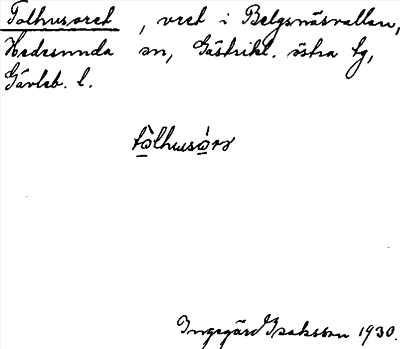 Tolhusoret, vret i Belgsnäsvallen,
Hedesunda sn, Gästrikl. östra tg,
Gävleb. l.
tòlhusórə
Ingegärd Isaksson 1930.